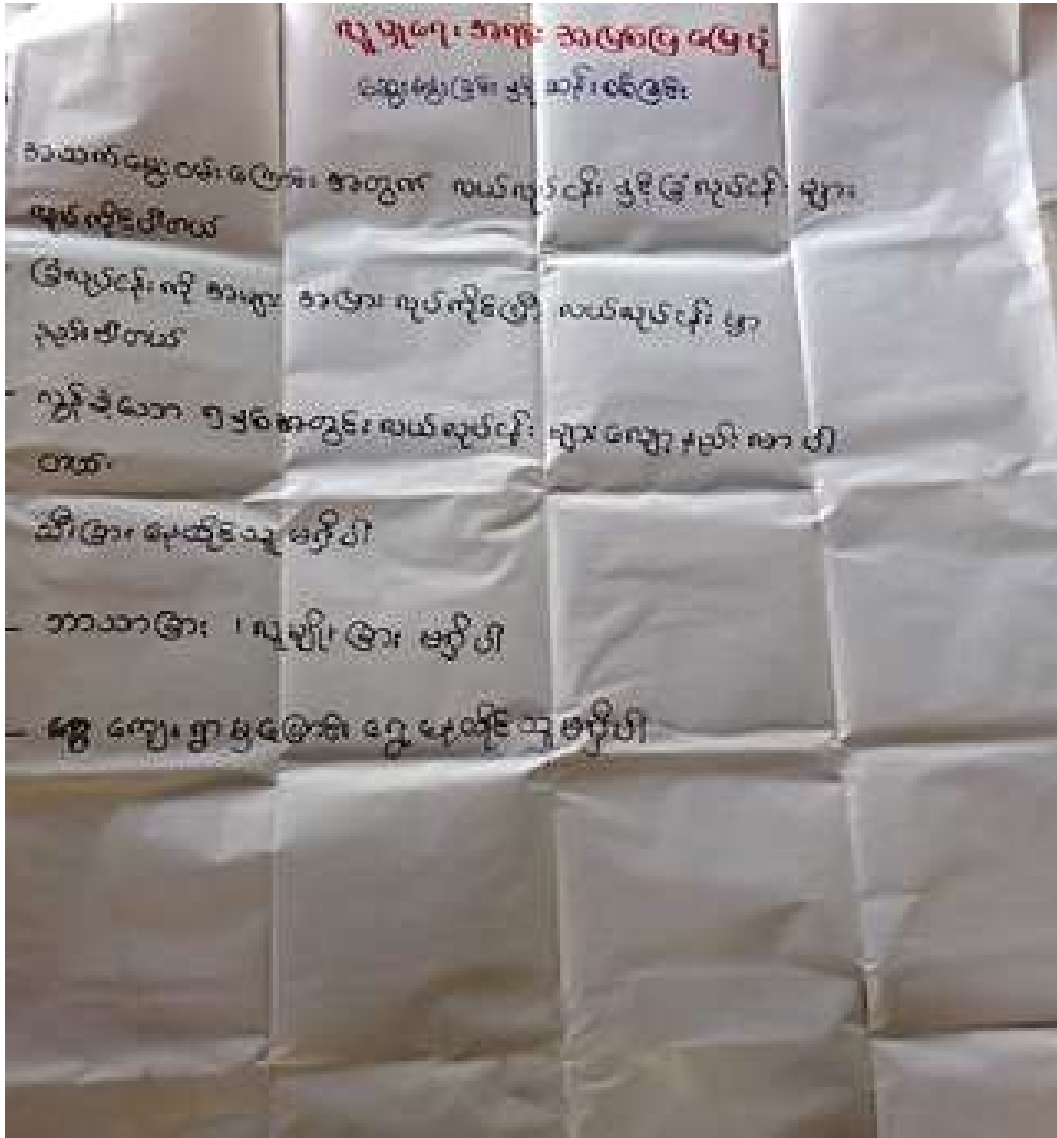 လူမှုရေး အရင်း အမြစ်ပြ မြေပုံ
ဆွေးနွေးခြင်း နှင့် ဆန်းစစ်ခြင်း
အသက်မွေးဝမ်းကြောင်း အတွက် လယ်လုပ်ငန်း နှင့် ခြံလုပ်ငန်း များ
လုပ်ကိုင်ပါတယ်
ခြံလုပ်ငန်းကို အများ အပြား လုပ်ကိုင်ပြီး လယ်လုပ်ငန်း မှာ
နည်းပါတယ်
- လွန်ခဲ့သော ၅ နှစ်အတွင်း လယ်လုပ်ငန်း များ လျော့နည်းလာ ပါ
တယ်။
သီးခြား နေထိုင်သူ မရှိပါ
- ဘာသာခြား ၊ လူမျိုး ခြား မရှိပါ
- ကျေးရွာ မှ ရွှေ့ နေထိုင်သူ မရှိပါ